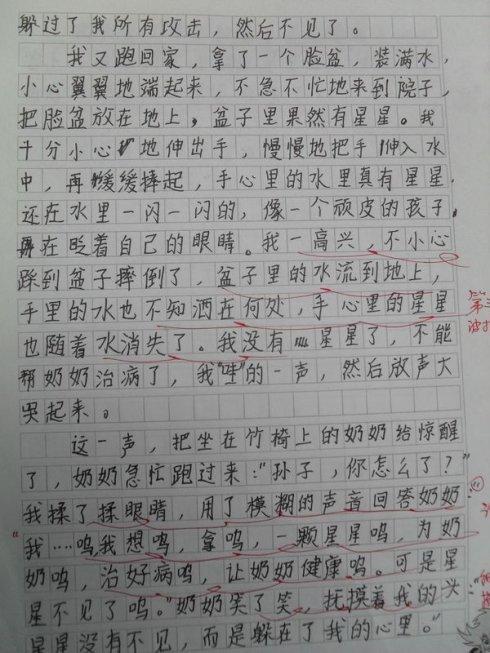 躲过了我所有攻击，然后不见了。
我又跑回家，拿了一个脸盆，装满水，
小心翼翼地端起来，不急不忙地来到院子，
把脸盆放在地上，盆子里果然有星星。我
十分小心地伸出手，慢慢地把手伸入水
中，再缓缓捧起，手心里的水里真有星星，
还在水里一闪一闪的，像一个顽皮的孩子，
再在眨着自己的眼睛。我一高兴，不小心
踩到盆子摔倒了，盆子里的水流到地上，
手里的水也不知洒在何处，手心里的星星
也随着水消失了。我没有星星了，不能
帮奶奶治病了，我"哇"的一声，然后放声大
哭起来。
这一声，把坐在竹椅上的奶奶给惊醒
了，奶奶急忙跑过来："孙子，你怎么了？"
我揉了揉眼睛，用了模糊的声音回答奶奶：
"我……呜我想呜，拿呜，一颗星星呜，为奶
奶呜，治好病呜，让奶奶健康呜。可是星
星不见了呜。"奶奶笑了笑，抚摸着我的头
星星没有不见，而是躲在了我的心里。"
第三